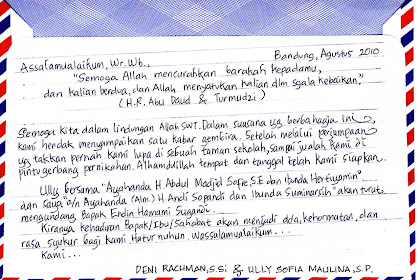 Bandung, Agustus 2010
Assalamualaikum, Wr. Wb.,
"Semoga Allah mencurahkan barakah kepadamu,
dan kalian berdua, dan Allah menyatukan kalian dlm sgala kebaikan."
(H.R. Abu Daud & Turmudzi)
Semoga kita dalam lindungan Allah SWT. Dalam suasana yg berbahagia ini
kami hendak menyampaikan satu kabar gembira. Setelah melalui perjumpaan
yg takkan pernah kami lupa di sebuah taman sekolah, sampai jualah kami di
pintu gerbang pernikahan. Alhamdulillah tempat dan tanggal telah kami siapkan.
Ully bersama "Ayahanda H. Abdul Madjid Sofie S.E dan Ibunda Hertiyamin"
dan saya "B/n Ayahanda (Alm.) H. Andi Sopandi dan Ibunda Suminarsih" akan turut
mengundang Bapak Endin Hamami Sugandi.
Kiranya kehadiran Bapak/Ibu/Sahabat akan menjadi doa, kehormatan, dan
rasa syukur bagi kami. Hatur nuhun. Wassalamualaikum...
Kami...
DENI RACHMAN, S.Si & ULLY SOFIA MAULINA, S.P.